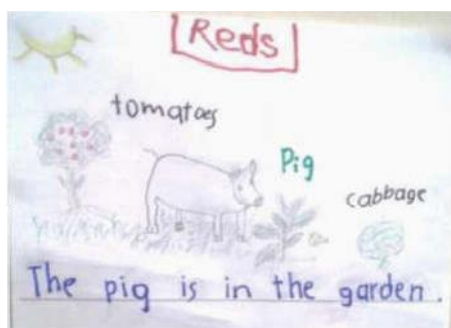 Reds
tomatoes
Pig
cabbage
The pig is in the garden.